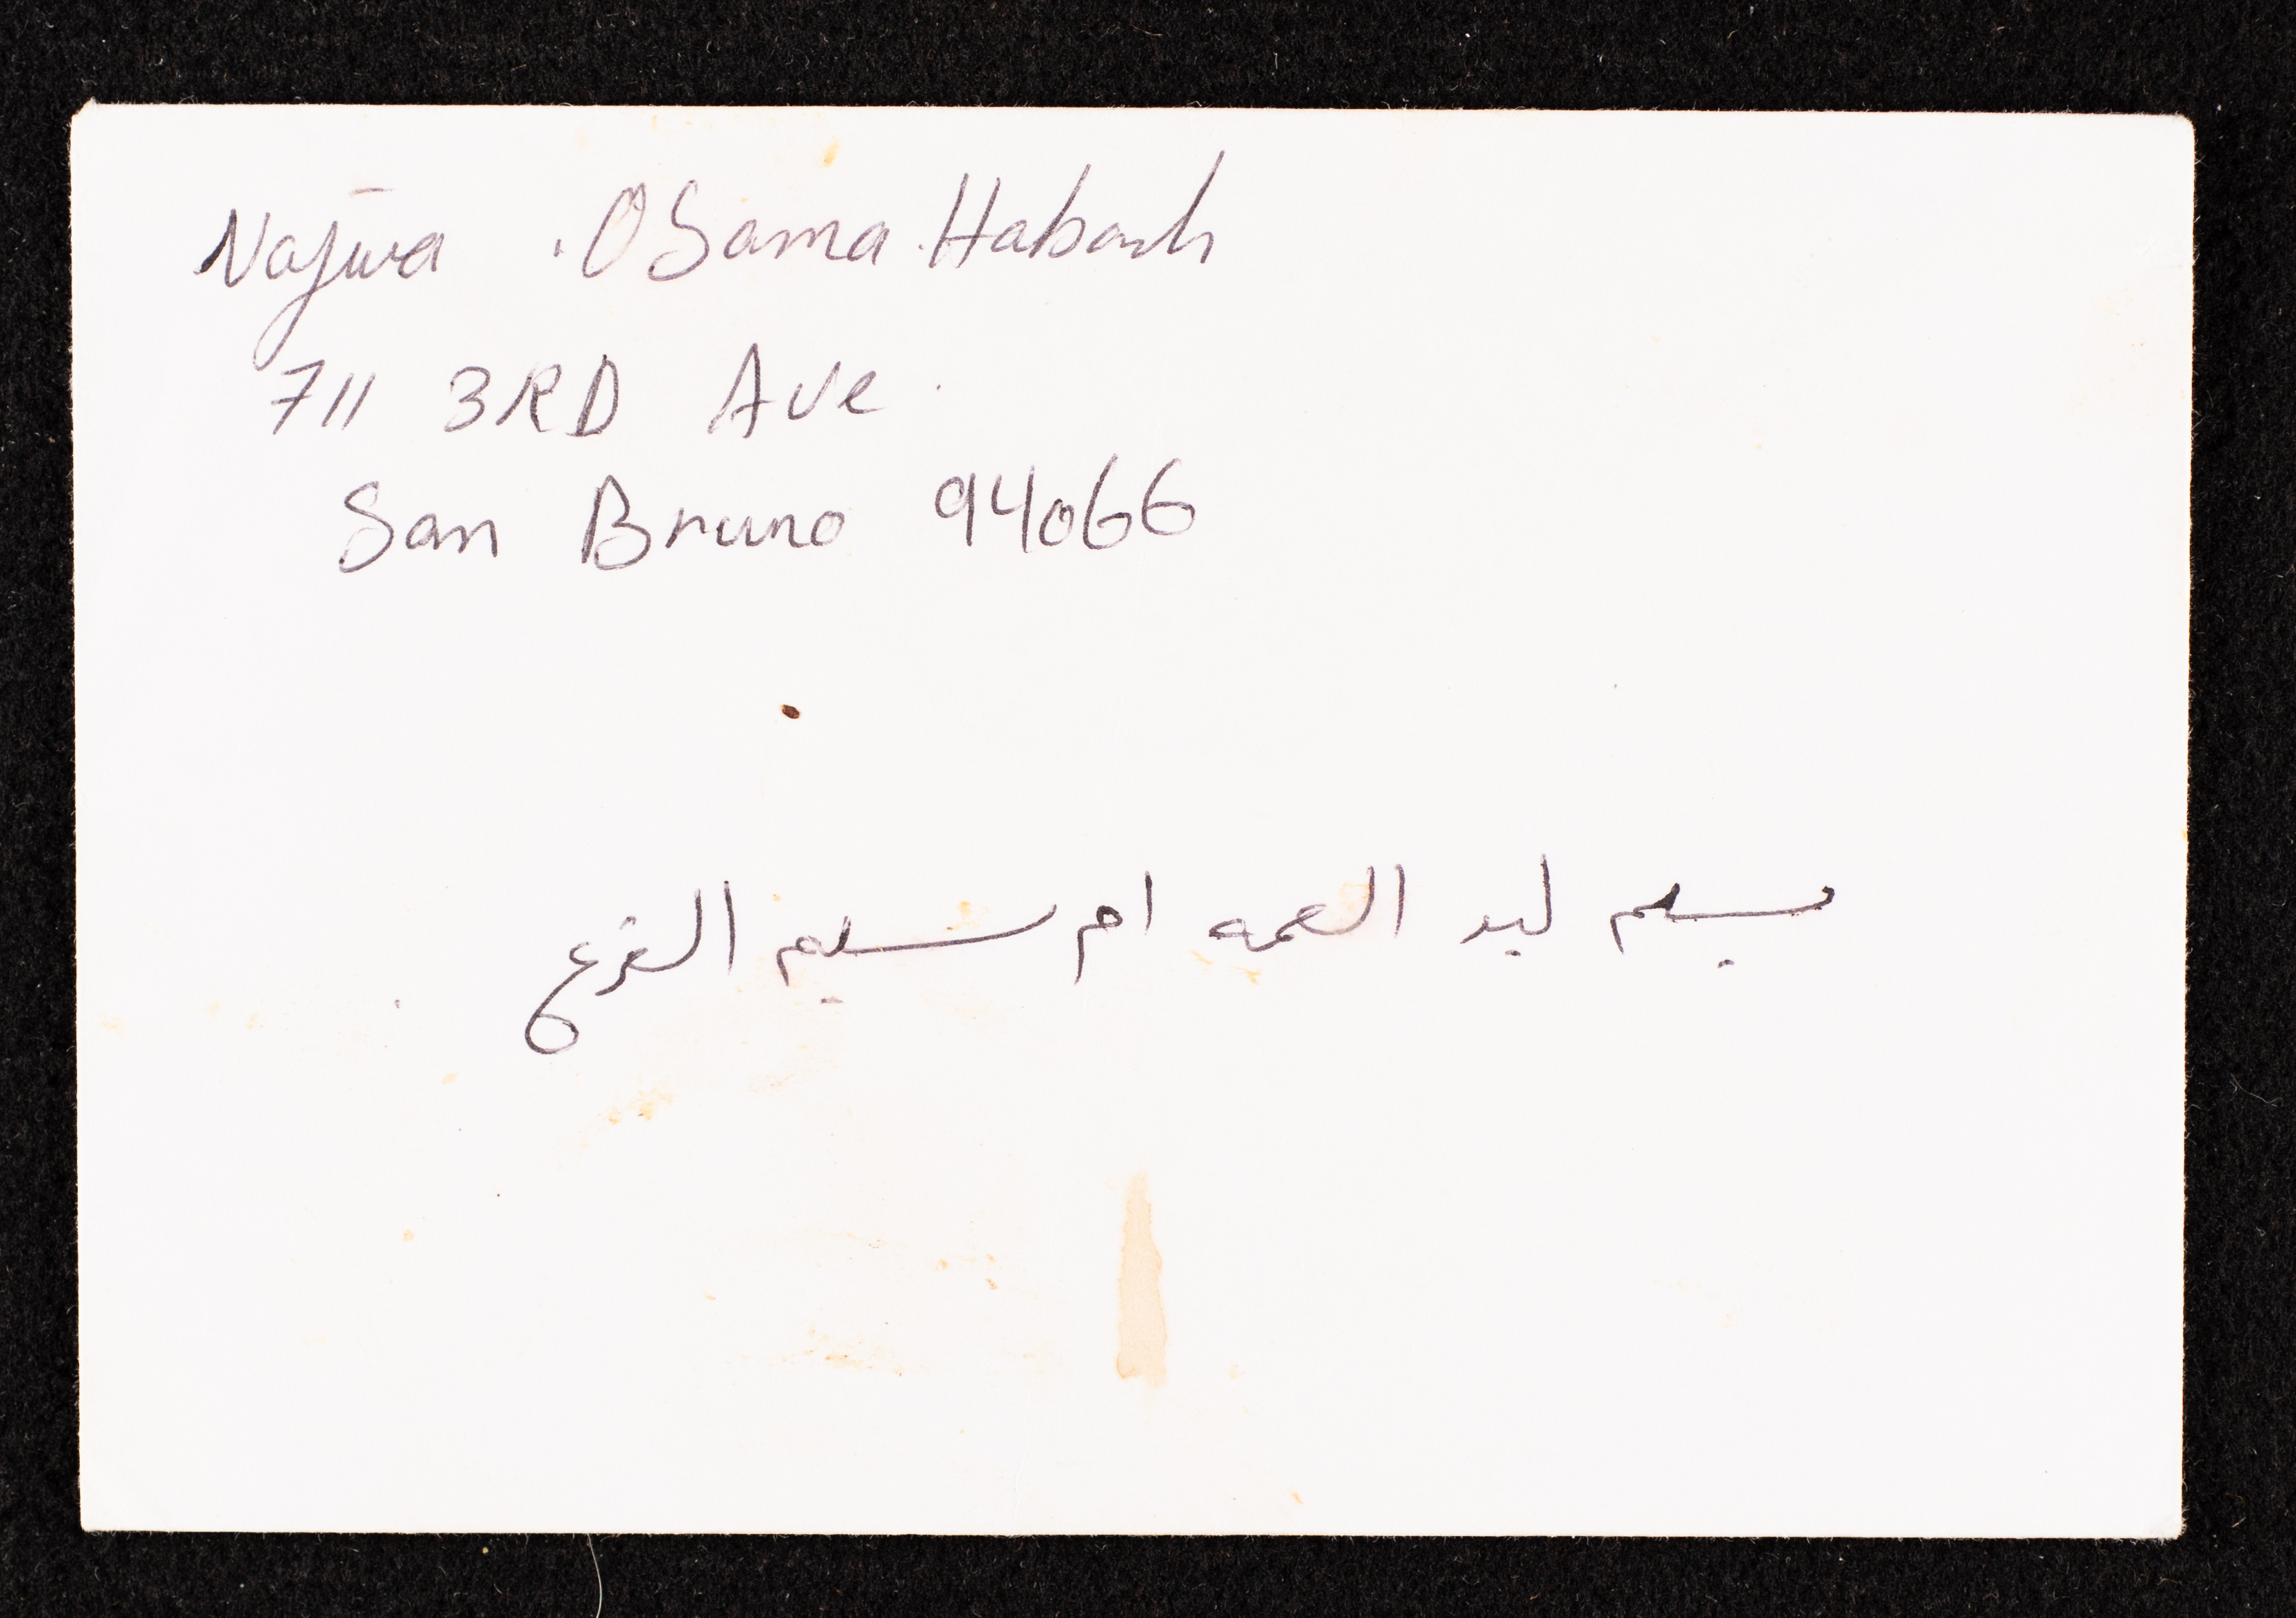 Najwa . OSama Habash
711 3RD Ave.
San Bruno 94066
يسلم ليد العمه ام سليم القرع